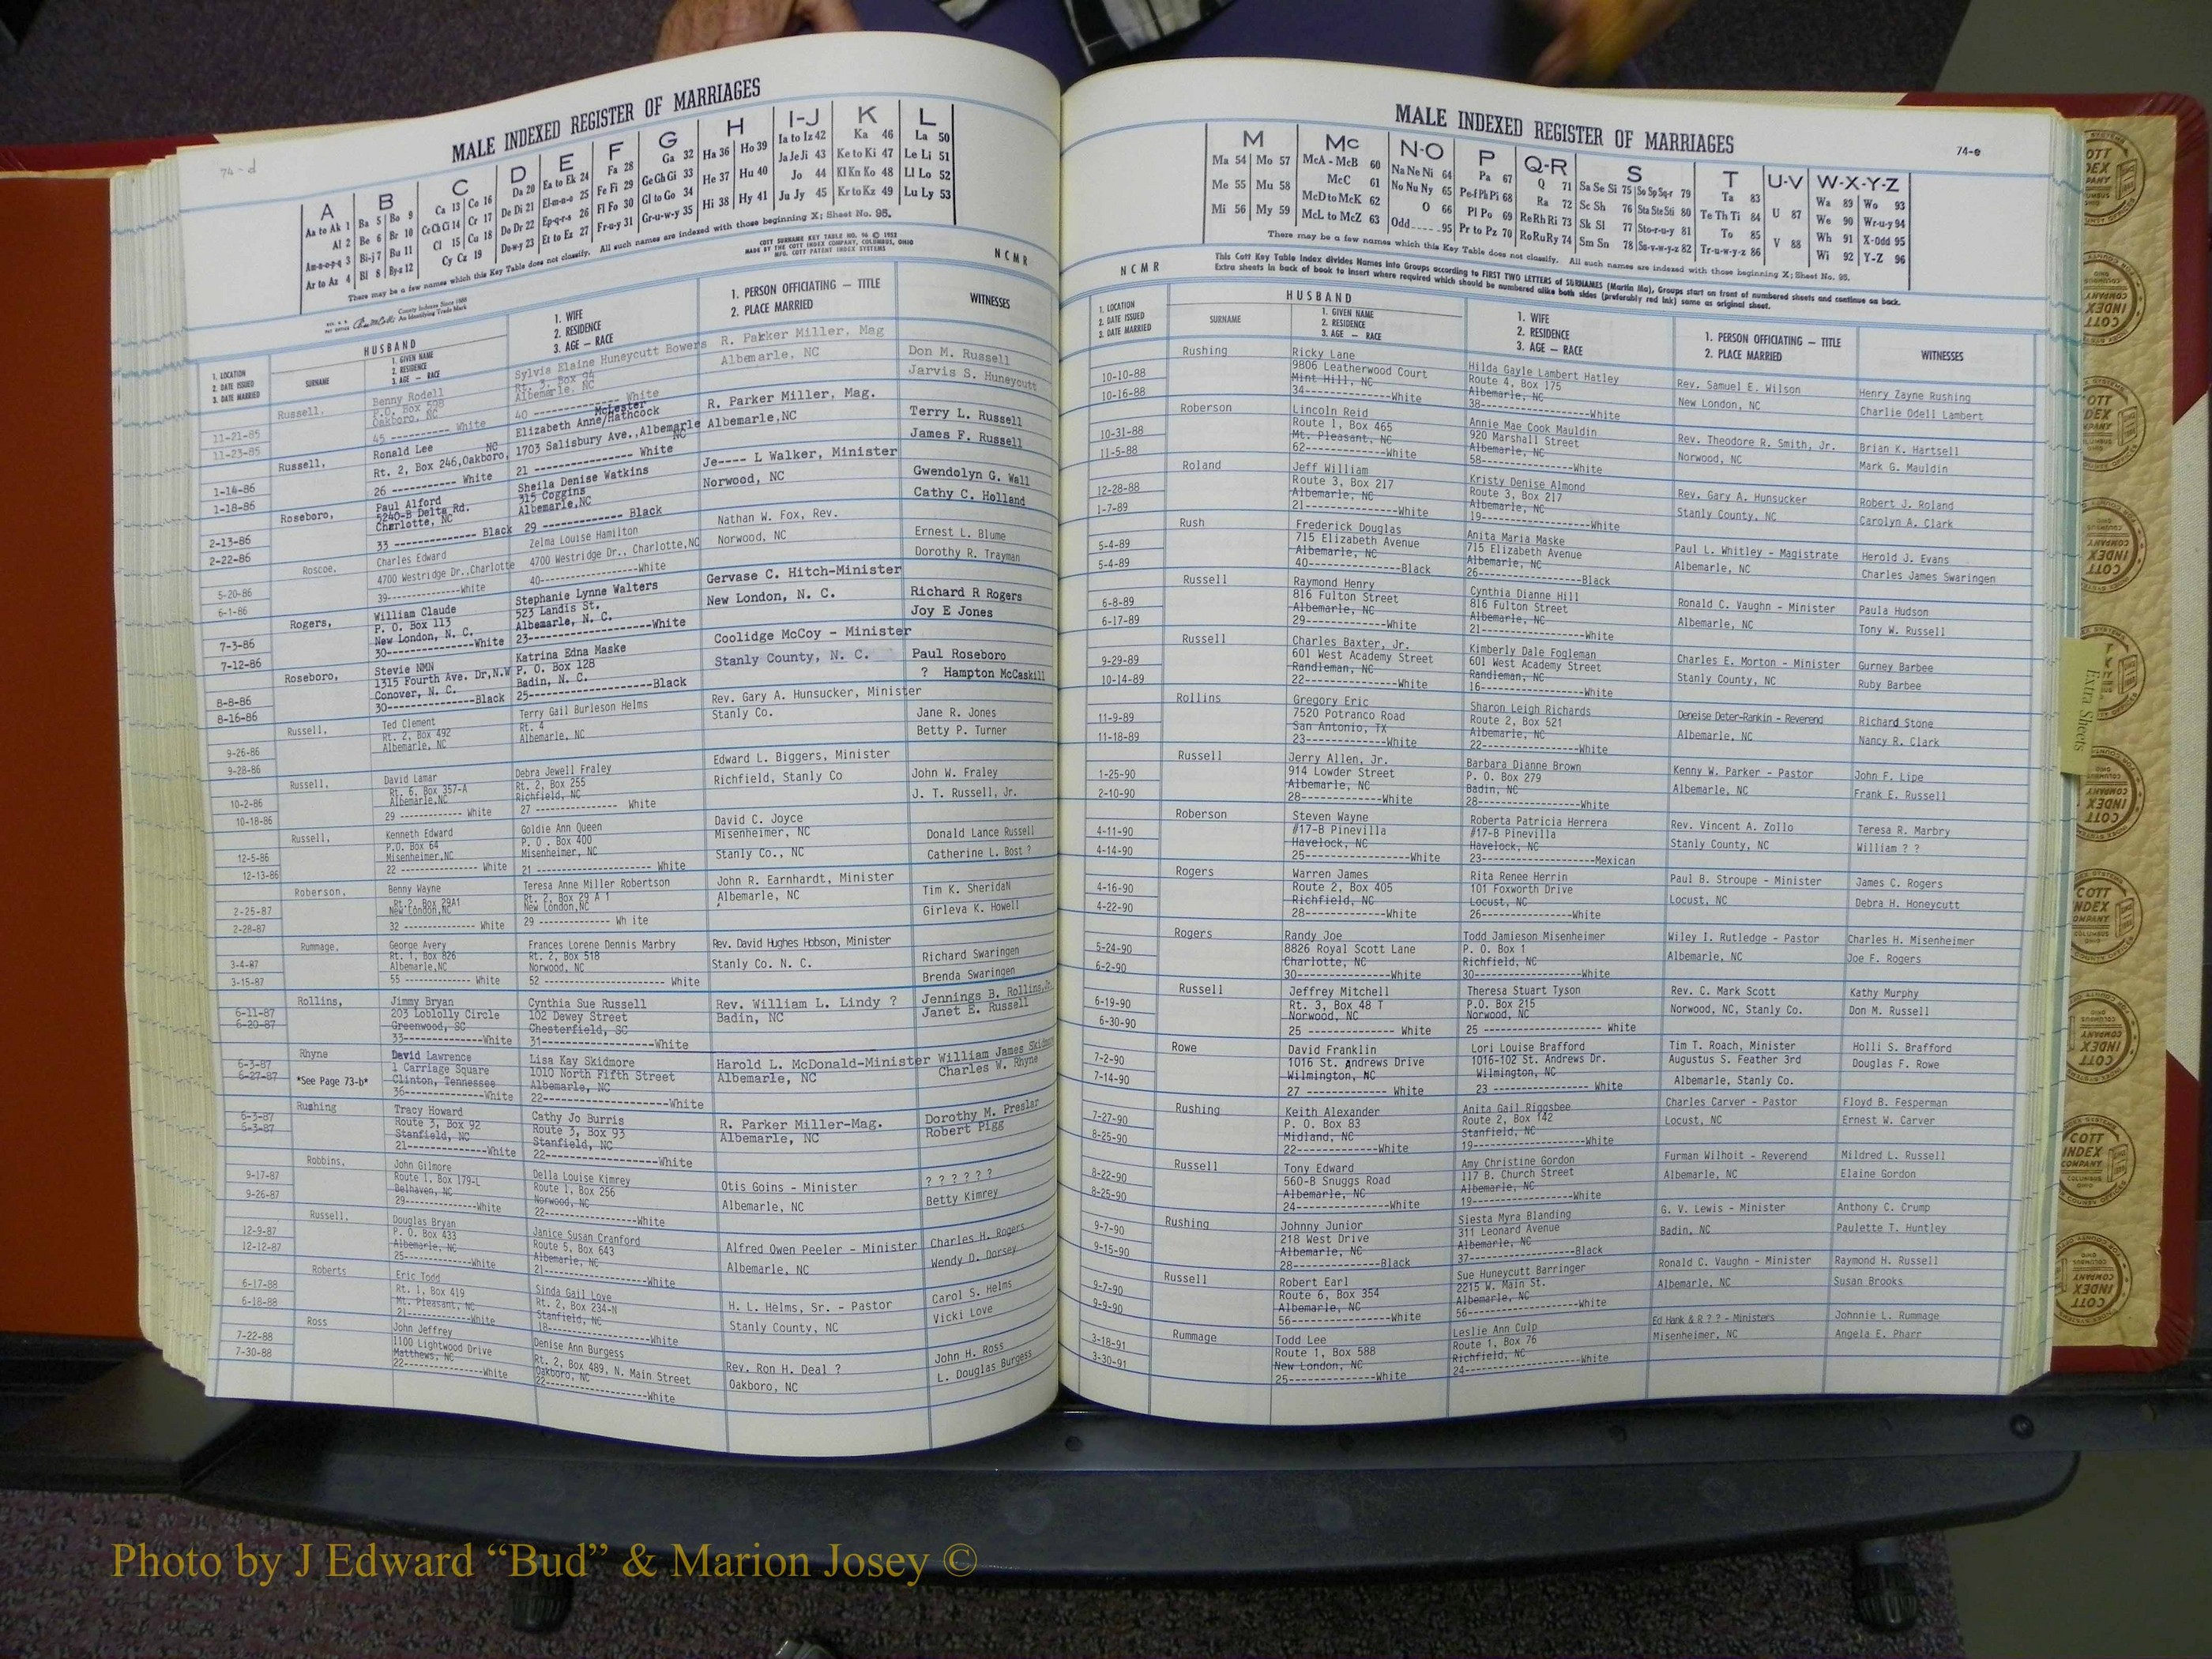 74-d
MALE INDEXED REGISTER OF MARRIAGES
A B C D E F G H I-J K L
Aa to Ak 1 Ba 5 Bo 9 Ca 13 Co 16 Da 20 Ea to Ek 24 Fa 28 Ga 32 Ha 36 Ho 39 Ia to Iz 42 Ka 46 La 50
Al 2 Be 6 Br 10 Ce Ch Ci 14 Cr 17 De Di 21 El-m-n-o 25 Fe Fi 29 Ge Gh Gi 33 He 37 Hu 40 Ja Je Ji 43 Ke to Ki 47 Le Li 51
Am-n-o-p-q 3 Bi-j 7 Bu 11 Cl 15 Cu 18 Do Dr 22 Ep-q-r-s 26 Fl Fo 30 Gl to Go 34 Hi 38 Hy 41 Jo 44 Kl Kn Ko 48 Ll Lo 52
Ar to Az 4 Bl 8 By-z 12 Cy Cz 19 Du-w-y 23 Et to Ez 27 Fr-u-y 31 Gr-u-w-y 35 Ju Jy 45 Kr to Kz 49 Lu Ly 53
There may be a few names which this Key Table does not classify. All such names are indexed with those beginning X; Sheet No. 95.
COTT SURNAME KEY TABLE NO. 96 © 1952
MADE BY THE COTT INDEX COMPANY, COLUMBUS, OHIO
MFG. COTT PATENT INDEX SYSTEMS
County Indexes Since 1888
An Identifying Trade Mark
NCMR
1. LOCATION
2. DATE ISSUED
3. DATE MARRIED
HUSBAND
SURNAME
1. GIVEN NAME
2. RESIDENCE
3. AGE — RACE
1. WIFE
2. RESIDENCE
3. AGE — RACE
1. PERSON OFFICIATING — TITLE
2. PLACE MARRIED
WITNESSES
11-21-85
11-23-85
Russell,
Benny Rodell
P.O. Box 598
Oakboro, NC
45 ---------- White
Sylvia Elaine Huneycutt Bowers
Rt. 3, Box 94
Albemarle, NC
40 ------------- White
R. Parker Miller, Mag
Albemarle, NC
Don M. Russell
Jarvis S. Huneycutt
1-14-86
1-18-86
Russell,
Ronald Lee
Rt. 2, Box 246,Oakboro, NC
26 ---------- White
McLester
Elizabeth Anne/Hathcock
1703 Salisbury Ave.,Albemarle NC
21 -------------- White
R. Parker Miller, Mag.
Albemarle,NC
Terry L. Russell
James F. Russell
2-13-86
2-22-86
Roseboro,
Paul Alford
5240-B Delta Rd.
Charlotte, NC
33 ------------ Black
Sheila Denise Watkins
315 Coggins
Albemarle,NC
29 ------------ Black
Je---- L Walker, Minister
Norwood, NC
Gwendolyn G. Wall
Cathy C. Holland
5-20-86
6-1-86
Roscoe,
Charles Edward
4700 Westridge Dr.,Charlotte
39-------------White
Zelma Louise Hamilton
4700 Westridge Dr., Charlotte,NC
40---------------White
Nathan W. Fox, Rev.
Norwood, NC
Ernest L. Blume
Dorothy R. Trayman
7-3-86
7-12-86
Rogers,
William Claude
P. O. Box 113
New London, N. C.
30--------------White
Stephanie Lynne Walters
523 Landis St.
Albemarle, N. C.
23-------------------White
Gervase C. Hitch-Minister
New London, N. C.
Richard R Rogers
Joy E Jones
8-8-86
8-16-86
Roseboro,
Stevie NMN
1315 Fourth Ave. Dr,N.W
Conover, N. C.
30--------------Black
Katrina Edna Maske
P. O. Box 128
Badin, N. C.
25-------------------Black
Coolidge McCoy - Minister
Stanly County, N. C.
Paul Roseboro
? Hampton McCaskill
9-26-86
9-28-86
Russell,
Ted Clement
Rt. 2, Box 492
Albemarle, NC
Terry Gail Burleson Helms
Rt. 4
Albemarle, NC
Rev. Gary A. Hunsucker, Minister
Stanly Co.
Jane R. Jones
Betty P. Turner
10-2-86
10-18-86
Russell,
David Lamar
Rt. 6, Box 357-A
Albemarle,NC
29 ------------ White
Debra Jewell Fraley
Rt. 2, Box 255
Richfield, NC
27 -------------- White
Edward L. Biggers, Minister
Richfield, Stanly Co
John W. Fraley
J. T. Russell, Jr.
12-5-86
12-13-86
Russell,
Kenneth Edward
P.O. Box 64
Misenheimer,NC
22 -------------- White
Goldie Ann Queen
P. O . Box 400
Misenheimer, NC
21 ------------------- White
David C. Joyce
Misenheimer, NC
Stanly Co., NC
Donald Lance Russell
Catherine L. Bost ?
2-25-87
2-28-87
Roberson,
Benny Wayne
Rt.2, Box 29A1
New London,NC
32 ------------ White
Teresa Anne Miller Robertson
Rt. 2, Box 29 A 1
New London,NC
29 ------------ Wh ite
John R. Earnhardt, Minister
Albemarle, NC
Tim K. SheridaN
Girleva K. Howell
3-4-87
3-15-87
Rummage,
George Avery
Rt. 1, Box 826
Albemarle,NC
55 ----------- White
Frances Lorene Dennis Marbry
Rt. 2, Box 518
Norwood, NC
52 -------------------- White
Rev. David Hughes Hobson, Minister
Stanly Co. N. C.
Richard Swaringen
Brenda Swaringen
6-11-87
6-20-87
Rollins,
Jimmy Bryan
203 Loblolly Circle
Greenwood, SC
33--------------White
Cynthia Sue Russell
102 Dewey Street
Chesterfield, SC
31-------------------White
Rev. William L. Lindy ?
Badin, NC
Jennings B. Rollins,Jr.
Janet E. Russell
6-3-87
6-27-87
Rhyne
*See Page 73-b*
David Lawrence
1 Carriage Square
Clinton, Tennessee
36--------------White
Lisa Kay Skidmore
1010 North Fifth Street
Albemarle, NC
22-----------------------White
Harold L. McDonald-Minister
Albemarle, NC
William James Skidmore
Charles W. Rhyne
6-3-87
6-3-87
Rushing
Tracy Howard
Route 3, Box 92
Stanfield, NC
21---------------White
Cathy Jo Burris
Route 3, Box 93
Stanfield, NC
22--------------------White
R. Parker Miller-Mag.
Albemarle, NC
Dorothy M. Preslar
Robert Pigg
9-17-87
9-26-87
Robbins,
John Gilmore
Route 1, Box 179-L
Belhaven, NC
29---------------White
Della Louise Kimrey
Route 1, Box 256
Norwood, NC
22------------------White
Otis Goins - Minister
Albemarle, NC
? ? ? ? ? ?
Betty Kimrey
12-9-87
12-12-87
Russell,
Douglas Bryan
P. O. Box 433
Albemarle, NC
25--------------White
Janice Susan Cranford
Route 5, Box 643
Albemarle, NC
21---------------------White
Alfred Owen Peeler - Minister
Albemarle, NC
Charles H. Rogers
Wendy D. Dorsey
6-17-88
6-18-88
Roberts
Eric Todd
Rt. 1, Box 419
Mt. Pleasant, NC
21---------------White
Sinda Gail Love
Rt. 2, Box 234-N
Stanfield, NC
18---------------------White
H. L. Helms, Sr. - Pastor
Stanly County, NC
Carol S. Helms
Vicki Love
7-22-88
7-30-88
Ross
John Jeffrey
1100 Lightwood Drive
Matthews, NC
22-----------------White
Denise Ann Burgess
Rt. 2, Box 489, N. Main Street
Oakboro, NC
22--------------------White
Rev. Ron H. Deal ?
Oakboro, NC
John H. Ross
L. Douglas Burgess
MALE INDEXED REGISTER OF MARRIAGES
74-e
M Mc N-O P Q-R S T U-V W-X-Y-Z
Ma 54 Mo 57 McA - McB 60 Na Ne Ni 64 Pa 67 Q 71 Sa Se Si 75 So Sp Sq-r 79 Ta 83 U 87 Wa 89 Wo 93
Me 55 Mu 58 McC 61 No Nu Ny 65 Pe-f Ph Pi 68 Ra 72 Sc Sh 76 Sta Ste Sti 80 Te Th Ti 84 V 88 We 90 Wr-u-y 94
Mi 56 My 59 McD to McK 62 O 66 Pl Po 69 Re Rh Ri 73 Sk Sl 77 Sto-r-u-y 81 To 85 Wh 91 X-Odd 95
McL to McZ 63 Odd 95 Pr to Pz 70 Ro Ru Ry 74 Sm Sn 78 Su-v-w-y-z 82 Tr-u-w-y-z 86 Wi 92 Y-Z 96
There may be a few names which this Key Table does not classify. All such names are indexed with those beginning X; Sheet No. 95.
This Cott Key Table Index divides Names into Groups according to FIRST TWO LETTERS of SURNAMES (Martin Ma), Groups start on front of numbered sheets and continue on back.
Extra sheets in back of book to insert where required which should be numbered alike both sides (preferably red ink) same as original sheet.
NCMR
1. LOCATION
2. DATE ISSUED
3. DATE MARRIED
HUSBAND
SURNAME
1. GIVEN NAME
2. RESIDENCE
3. AGE — RACE
1. WIFE
2. RESIDENCE
3. AGE — RACE
1. PERSON OFFICIATING — TITLE
2. PLACE MARRIED
WITNESSES
10-10-88
10-16-88
Rushing
Ricky Lane
9806 Leatherwood Court
Mint Hill, NC
34--------------White
Hilda Gayle Lambert Hatley
Route 4, Box 175
Albemarle, NC
38-----------------White
Rev. Samuel E. Wilson
New London, NC
Henry Zayne Rushing
Charlie Odell Lambert
10-31-88
11-5-88
Roberson
Lincoln Reid
Route 1, Box 465
Mt. Pleasant, NC
62--------------White
Annie Mae Cook Mauldin
920 Marshall Street
Albemarle, NC
58--------------White
Rev. Theodore R. Smith, Jr.
Norwood, NC
Brian K. Hartsell
Mark G. Mauldin
12-28-88
1-7-89
Roland
Jeff William
Route 3, Box 217
Albemarle, NC
21---------------White
Kristy Denise Almond
Route 3, Box 217
Albemarle, NC
19-----------------White
Rev. Gary A. Hunsucker
Stanly County, NC
Robert J. Roland
Carolyn A. Clark
5-4-89
5-4-89
Rush
Frederick Douglas
715 Elizabeth Avenue
Albemarle, NC
40---------------Black
Anita Maria Maske
715 Elizabeth Avenue
Albemarle, NC
26----------------Black
Paul L. Whitley - Magistrate
Albemarle, NC
Herold J. Evans
Charles James Swaringen
6-8-89
6-17-89
Russell
Raymond Henry
816 Fulton Street
Albemarle, NC
29--------------White
Cynthia Dianne Hill
816 Fulton Street
Albemarle, NC
21----------------White
Ronald C. Vaughn - Minister
Albemarle, NC
Paula Hudson
Tony W. Russell
9-29-89
10-14-89
Russell
Charles Baxter, Jr.
601 West Academy Street
Randleman, NC
22---------------White
Kimberly Dale Fogleman
601 West Academy Street
Randleman, NC
16----------------White
Charles E. Morton - Minister
Stanly County, NC
Gurney Barbee
Ruby Barbee
11-9-89
11-18-89
Rollins
Gregory Eric
7520 Potranco Road
San Antonio, TX
23--------------White
Sharon Leigh Richards
Route 2, Box 521
Albemarle, NC
22----------------White
Deneise Deter-Rankin - Reverend
Albemarle, NC
Richard Stone
Nancy R. Clark
1-25-90
2-10-90
Russell
Jerry Allen, Jr.
914 Lowder Street
Albemarle, NC
28--------------White
Barbara Dianne Brown
P. O. Box 279
Badin, NC
28----------------White
Kenny W. Parker - Pastor
Albemarle, NC
John F. Lipe
Frank E. Russell
4-11-90
4-14-90
Roberson
Steven Wayne
#17-B Pinevilla
Havelock, NC
25-----------------White
Roberta Patricia Herrera
#17-B Pinevilla
Havelock, NC
23------------------Mexican
Rev. Vincent A. Zollo
Stanly County, NC
Teresa R. Marbry
William ? ?
4-16-90
4-22-90
Rogers
Warren James
Route 2, Box 405
Richfield, NC
28--------------White
Rita Renee Herrin
101 Foxworth Drive
Locust, NC
26----------------White
Paul B. Stroupe - Minister
Locust, NC
James C. Rogers
Debra H. Honeycutt
5-24-90
6-2-90
Rogers
Randy Joe
8826 Royal Scott Lane
Charlotte, NC
30---------------White
Todd Jamieson Misenheimer
P. O. Box 1
Richfield, NC
30------------------White
Wiley I. Rutledge - Pastor
Albemarle, NC
Charles H. Misenheimer
Joe F. Rogers
6-19-90
6-30-90
Russell
Jeffrey Mitchell
Rt. 3, Box 48 T
Norwood, NC
25 -------------- White
Theresa Stuart Tyson
P.O. Box 215
Norwood, NC
25 ------------------ White
Rev. C. Mark Scott
Norwood, NC, Stanly Co.
Kathy Murphy
Don M. Russell
7-2-90
7-14-90
Rowe
David Franklin
1016 St. Andrews Drive
Wilmington, NC
27 ------------- White
Lori Louise Brafford
1016-102 St. Andrews Dr.
Wilmington, NC
23 ---------------- White
Tim T. Roach, Minister
Augustus S. Feather 3rd
Albemarle, Stanly Co.
Holli S. Brafford
Douglas F. Rowe
7-27-90
8-25-90
Rushing
Keith Alexander
P. O. Box 83
Midland, NC
22--------------White
Anita Gail Riggsbee
Route 2, Box 142
Stanfield, NC
19------------------White
Charles Carver - Pastor
Locust, NC
Floyd B. Fesperman
Ernest W. Carver
8-22-90
8-25-90
Russell
Tony Edward
560-B Snuggs Road
Albemarle, NC
24---------------White
Amy Christine Gordon
117 B. Church Street
Albemarle, NC
19----------------White
Furman Wilhoit - Reverend
Albemarle, NC
Mildred L. Russell
Elaine Gordon
9-7-90
9-15-90
Rushing
Johnny Junior
218 West Drive
Albemarle, NC
28--------------Black
Siesta Myra Blanding
311 Leonard Avenue
Albemarle, NC
37----------------Black
G. V. Lewis - Minister
Badin, NC
Anthony C. Crump
Paulette T. Huntley
9-7-90
9-9-90
Russell
Robert Earl
Route 6, Box 354
Albemarle, NC
56---------------White
Sue Huneycutt Barringer
2215 W. Main St.
Albemarle, NC
56-----------------White
Ronald C. Vaughn - Minister
Albemarle, NC
Raymond H. Russell
Susan Brooks
3-18-91
3-30-91
Rummage
Todd Lee
Route 1, Box 588
New London, NC
25---------------White
Leslie Ann Culp
Route 1, Box 76
Richfield, NC
24------------------White
Ed Hank & R ? ? - Ministers
Misenheimer, NC
Johnnie L. Rummage
Angela E. Pharr
Extra Sheets
COTT
INDEX
COMPANY
COLUMBUS
OHIO
Photo by J Edward “Bud” & Marion Josey ©